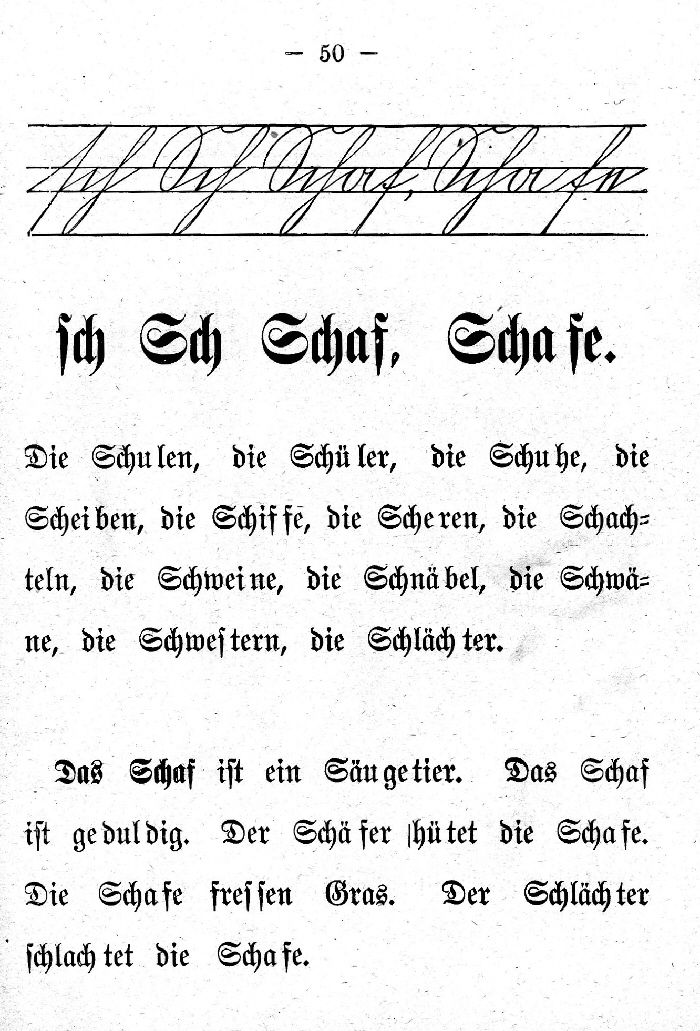 — 50 —
sch Sch Schaf, Schafe
sch Sch Schaf, Schafe.
Die Schulen, die Schüler, die Schuhe, die
Scheiben, die Schiffe, die Scheren, die Schach-
teln, die Schweine, die Schnäbel, die Schwä-
ne, die Schwestern, die Schlächter.
Das Schaf ist ein Säugetier. Das Schaf
ist geduldig. Der Schäfer hütet die Schafe.
Die Schafe fressen Gras. Der Schlächter
schlachtet die Schafe.